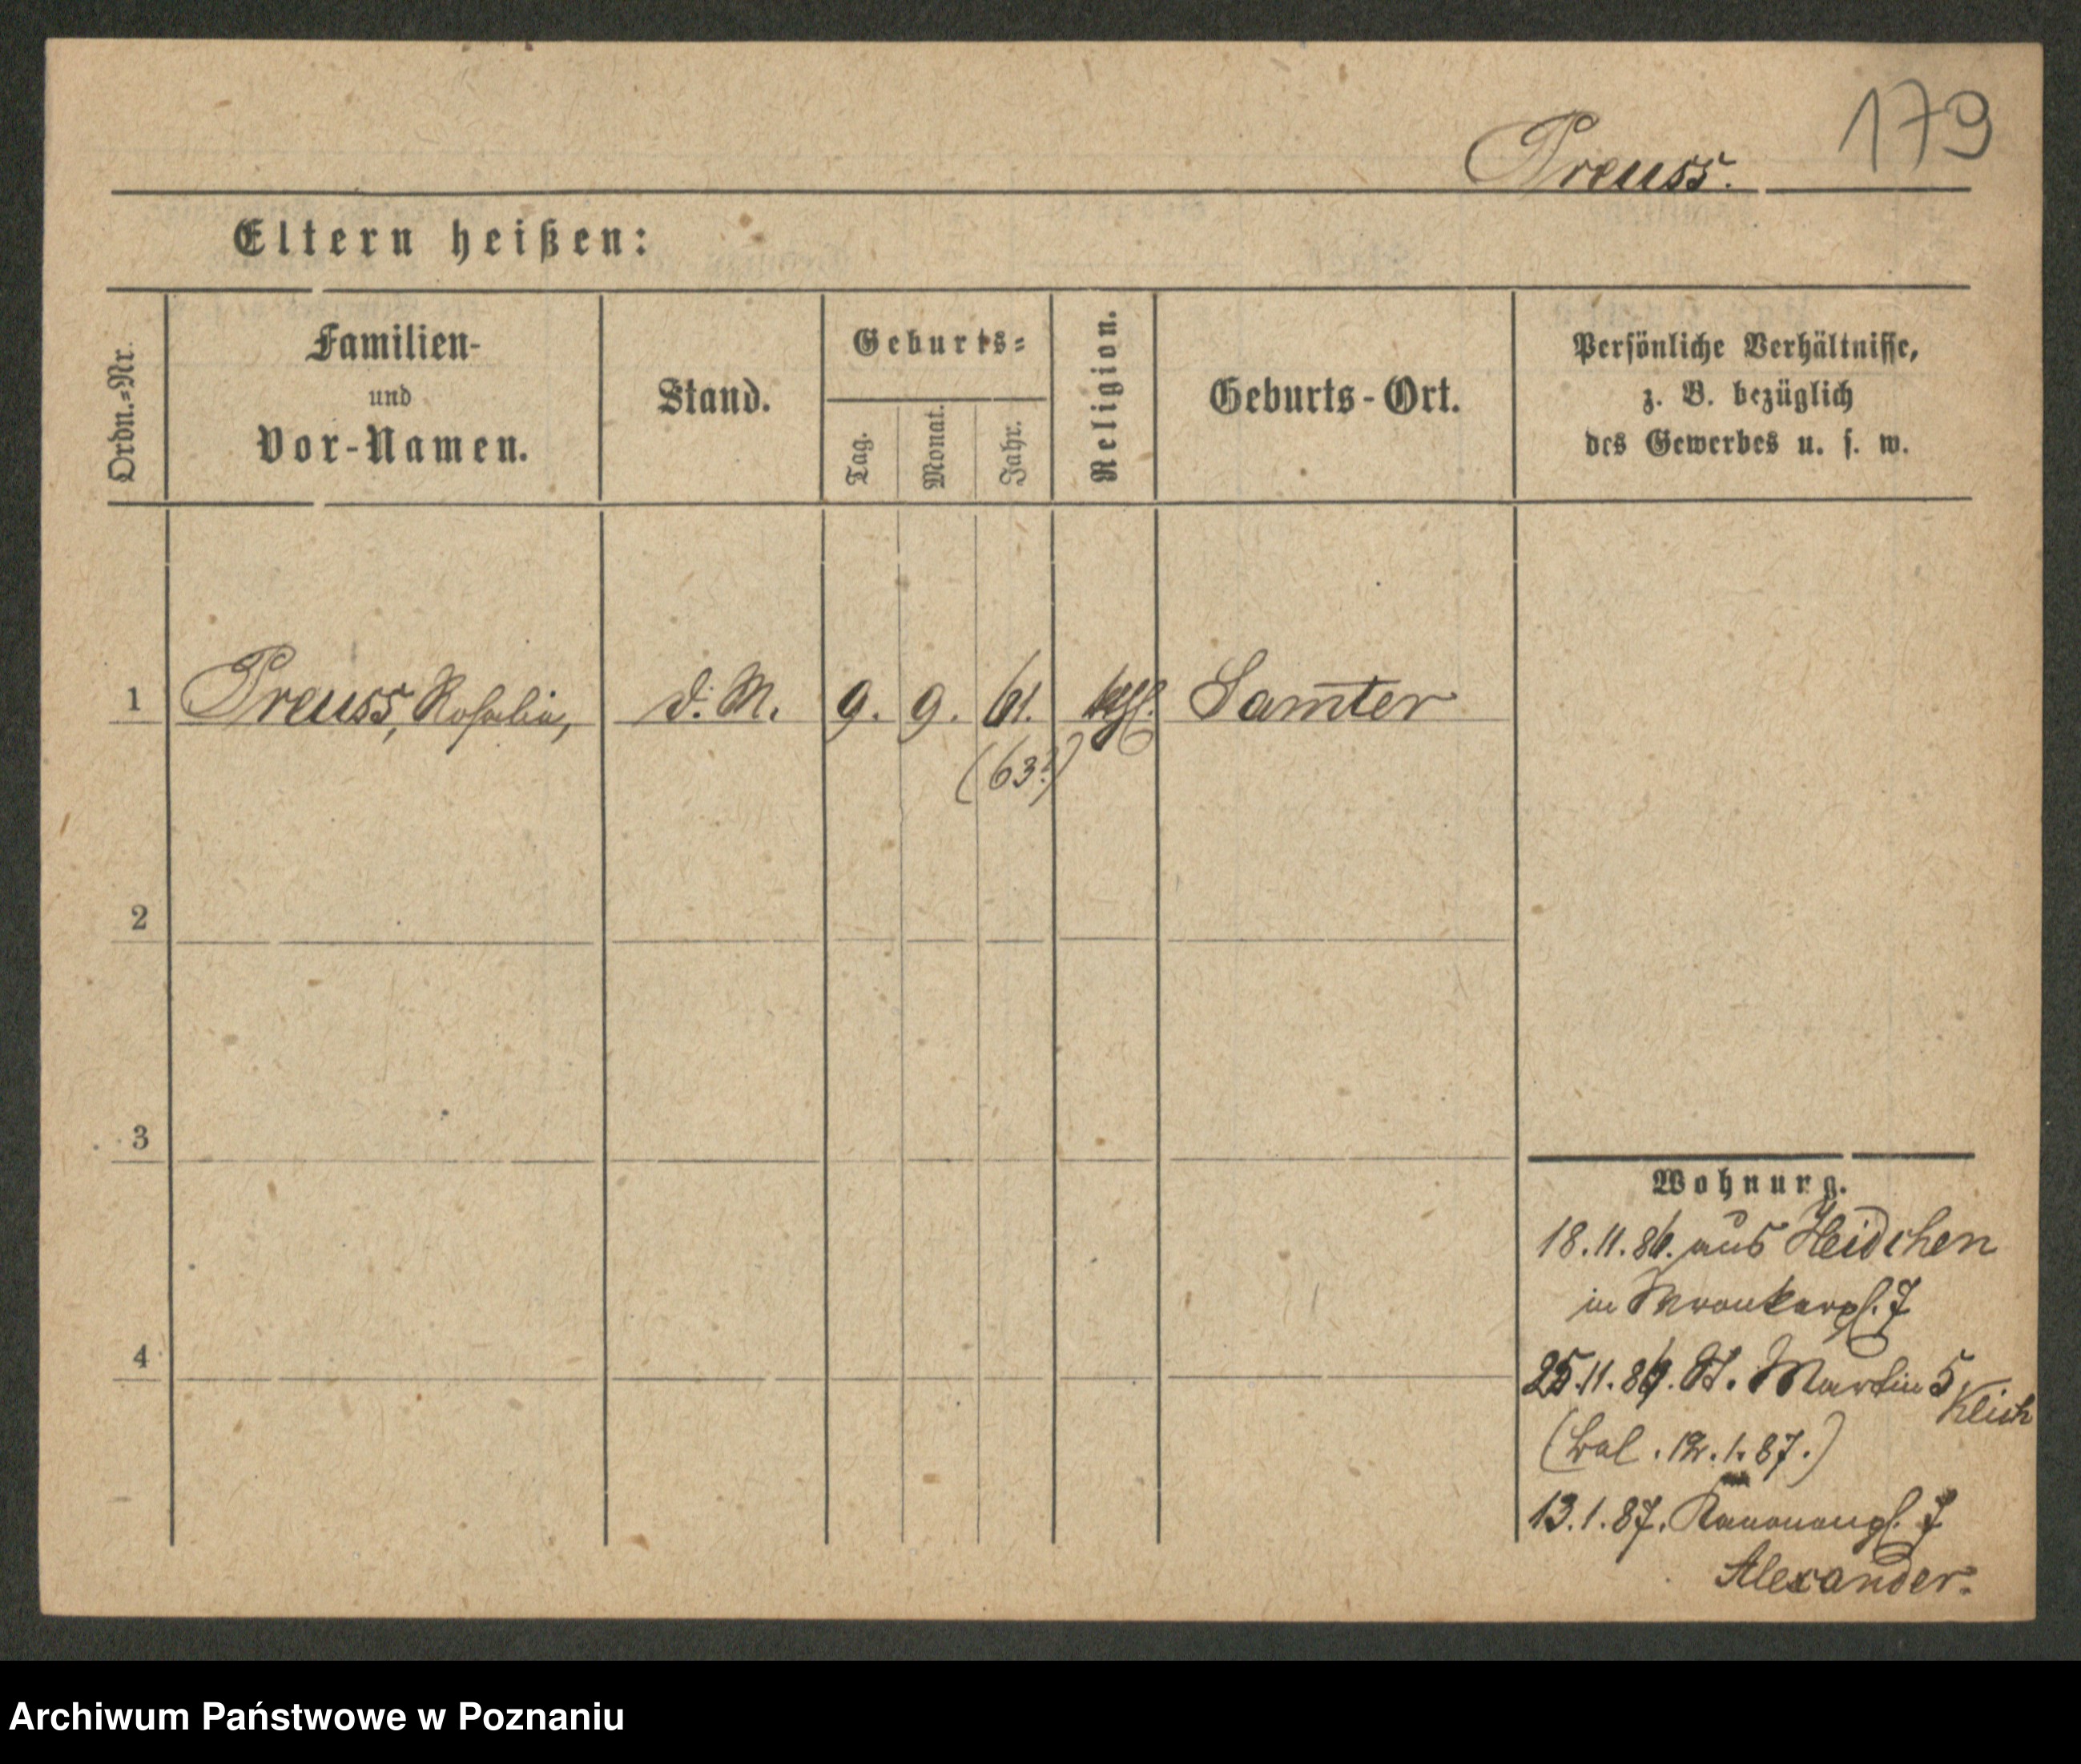 179
Preuss.
Eltern heißen:
Ordn.=Nr.
Familien-
und
Vor-Namen.
Stand.
Geburts=
Tag.
Monat.
Jahr.
Religion.
Geburts-Ort.
Persönliche Verhältnisse,
z. B. bezüglich
des Gewerbes u. s. w.
1 Preuss, Rosalia, d. M. 9. 9. 61. Samter
(63?)
2
3
4
Wohnung.
18.11.86. aus Heidchen
in Wronkerpl. 7
25.11.86. St. Martin 5
Klich
(bal. 12.1.87.)
13.1.87. Kanonenpl. 7
Alexander.
Archiwum Państwowe w Poznaniu